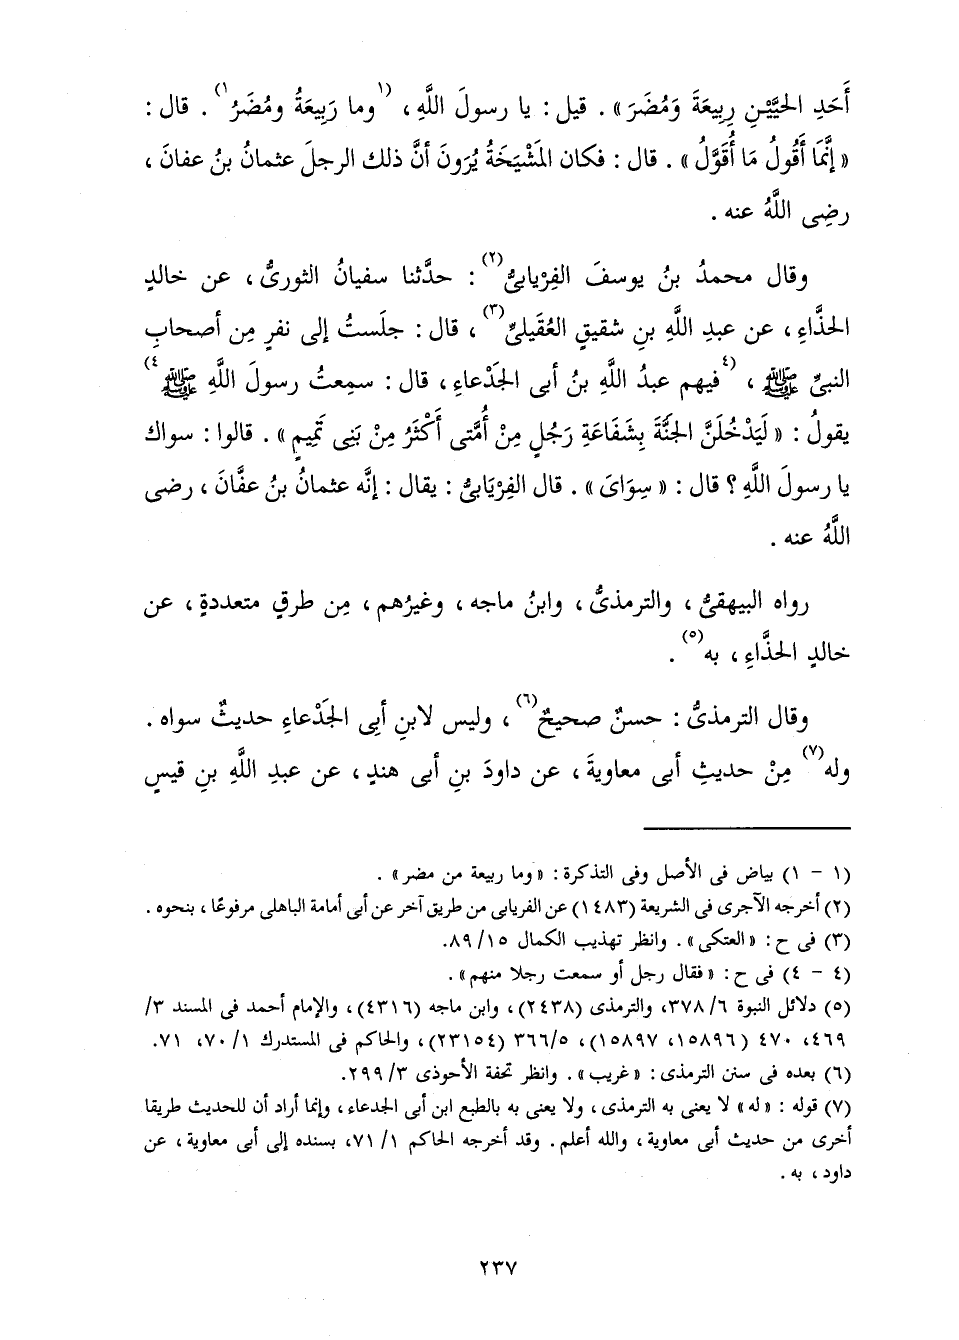 أَحَدِ الحَيَّيْنِ رِبِيعَةَ وَمُضَرَ» . قيل : يا رسولَ اللَّهِ ، (١وما رَبِيعَةُ ومُضَرُ١) . قال :
« إِنَّمَا أَقُولُ مَا أُقَوَّلُ » . قال : فكان المَشْيَخَةُ يُرَونَ أنَّ ذلك الرجلَ عثمانُ بنُ عفانَ ،
رضِى اللَّهُ عنه .
وقال محمدُ بنُ يوسفَ الفِرْيابىُّ(٢) : حدَّثنا سفيانُ الثورىُّ ، عن خالدٍ
الحذَّاءِ ، عن عبدِ اللَّهِ بنِ شقيقٍ العُقَيلىِّ(٣) ، قال : جلَستُ إلى نفرٍ مِن أصحابِ
النبىِّ ﷺ ، (٤فيهم عبدُ اللَّهِ بنُ أبى الجَدْعاءِ ، قال : سمِعتُ رسولَ اللَّهِ ﷺ٤)
يقولُ : « لَيَدْخُلَنَّ الجَنَّةَ بِشَفَاعَةِ رَجُلٍ مِنْ أُمَّتى أَكْثَرُ مِنْ بَنِى تَمِيمٍ » . قالوا : سواك
يا رسولَ اللَّهِ ؟ قال : « سِوَاىَ » . قال الفِرْيَابىُّ : يقال : إنَّه عثمانُ بنُ عفَّانَ ، رضى
اللَّهُ عنه .
رواه البيهقىُّ ، والترمذىُّ ، وابنُ ماجه ، وغيرُهم ، مِن طرقٍ متعددةٍ ، عن
خالدٍ الحذَّاءِ ، به(٥) .
وقال الترمذىُّ : حسنٌ صحيحٌ(٦) ، وليس لابنِ أبِى الجَدْعاءِ حديثٌ سواه .
وله(٧) مِنْ حديثِ أبى معاويةَ ، عن داودَ بنِ أبى هندٍ ، عن عبدِ اللَّهِ بنِ قيسٍ
(١ - ١) بياض فى الأصل وفى التذكرة : «وما ربيعة من مضر» .
(٢) أخرجه الآجرى فى الشريعة (١٤٨٣) عن الفريابى من طريق آخر عن أبى أمامة الباهلى مرفوعًا ، بنحوه .
(٣) فى ح : «العتكى» . وانظر تهذيب الكمال ١٥/ ٨٩.
(٤ - ٤) فى ح : «فقال رجل أو سمعت رجلا منهم» .
(٥) دلائل النبوة ٦/ ٣٧٨، والترمذى (٢٤٣٨)، وابن ماجه (٤٣١٦)، والإمام أحمد فى المسند ٣/
٤٦٩، ٤٧٠ (١٥٨٩٦، ١٥٨٩٧)، ٥/ ٣٦٦ (٢٣١٥٤)، والحاكم فى المستدرك ١/ ٧٠، ٧١.
(٦) بعده فى سنن الترمذى : «غريب» . وانظر تحفة الأحوذى ٣/ ٢٩٩.
(٧) قوله : «له» لا يعنى به الترمذى ، ولا يعنى به بالطبع ابن أبى الجدعاء ، وإنما أراد أن للحديث طريقا
أخرى من حديث أبى معاوية ، والله أعلم . وقد أخرجه الحاكم ١/ ٧١، بسنده إلى أبى معاوية ، عن
داود ، به .
٢٣٧